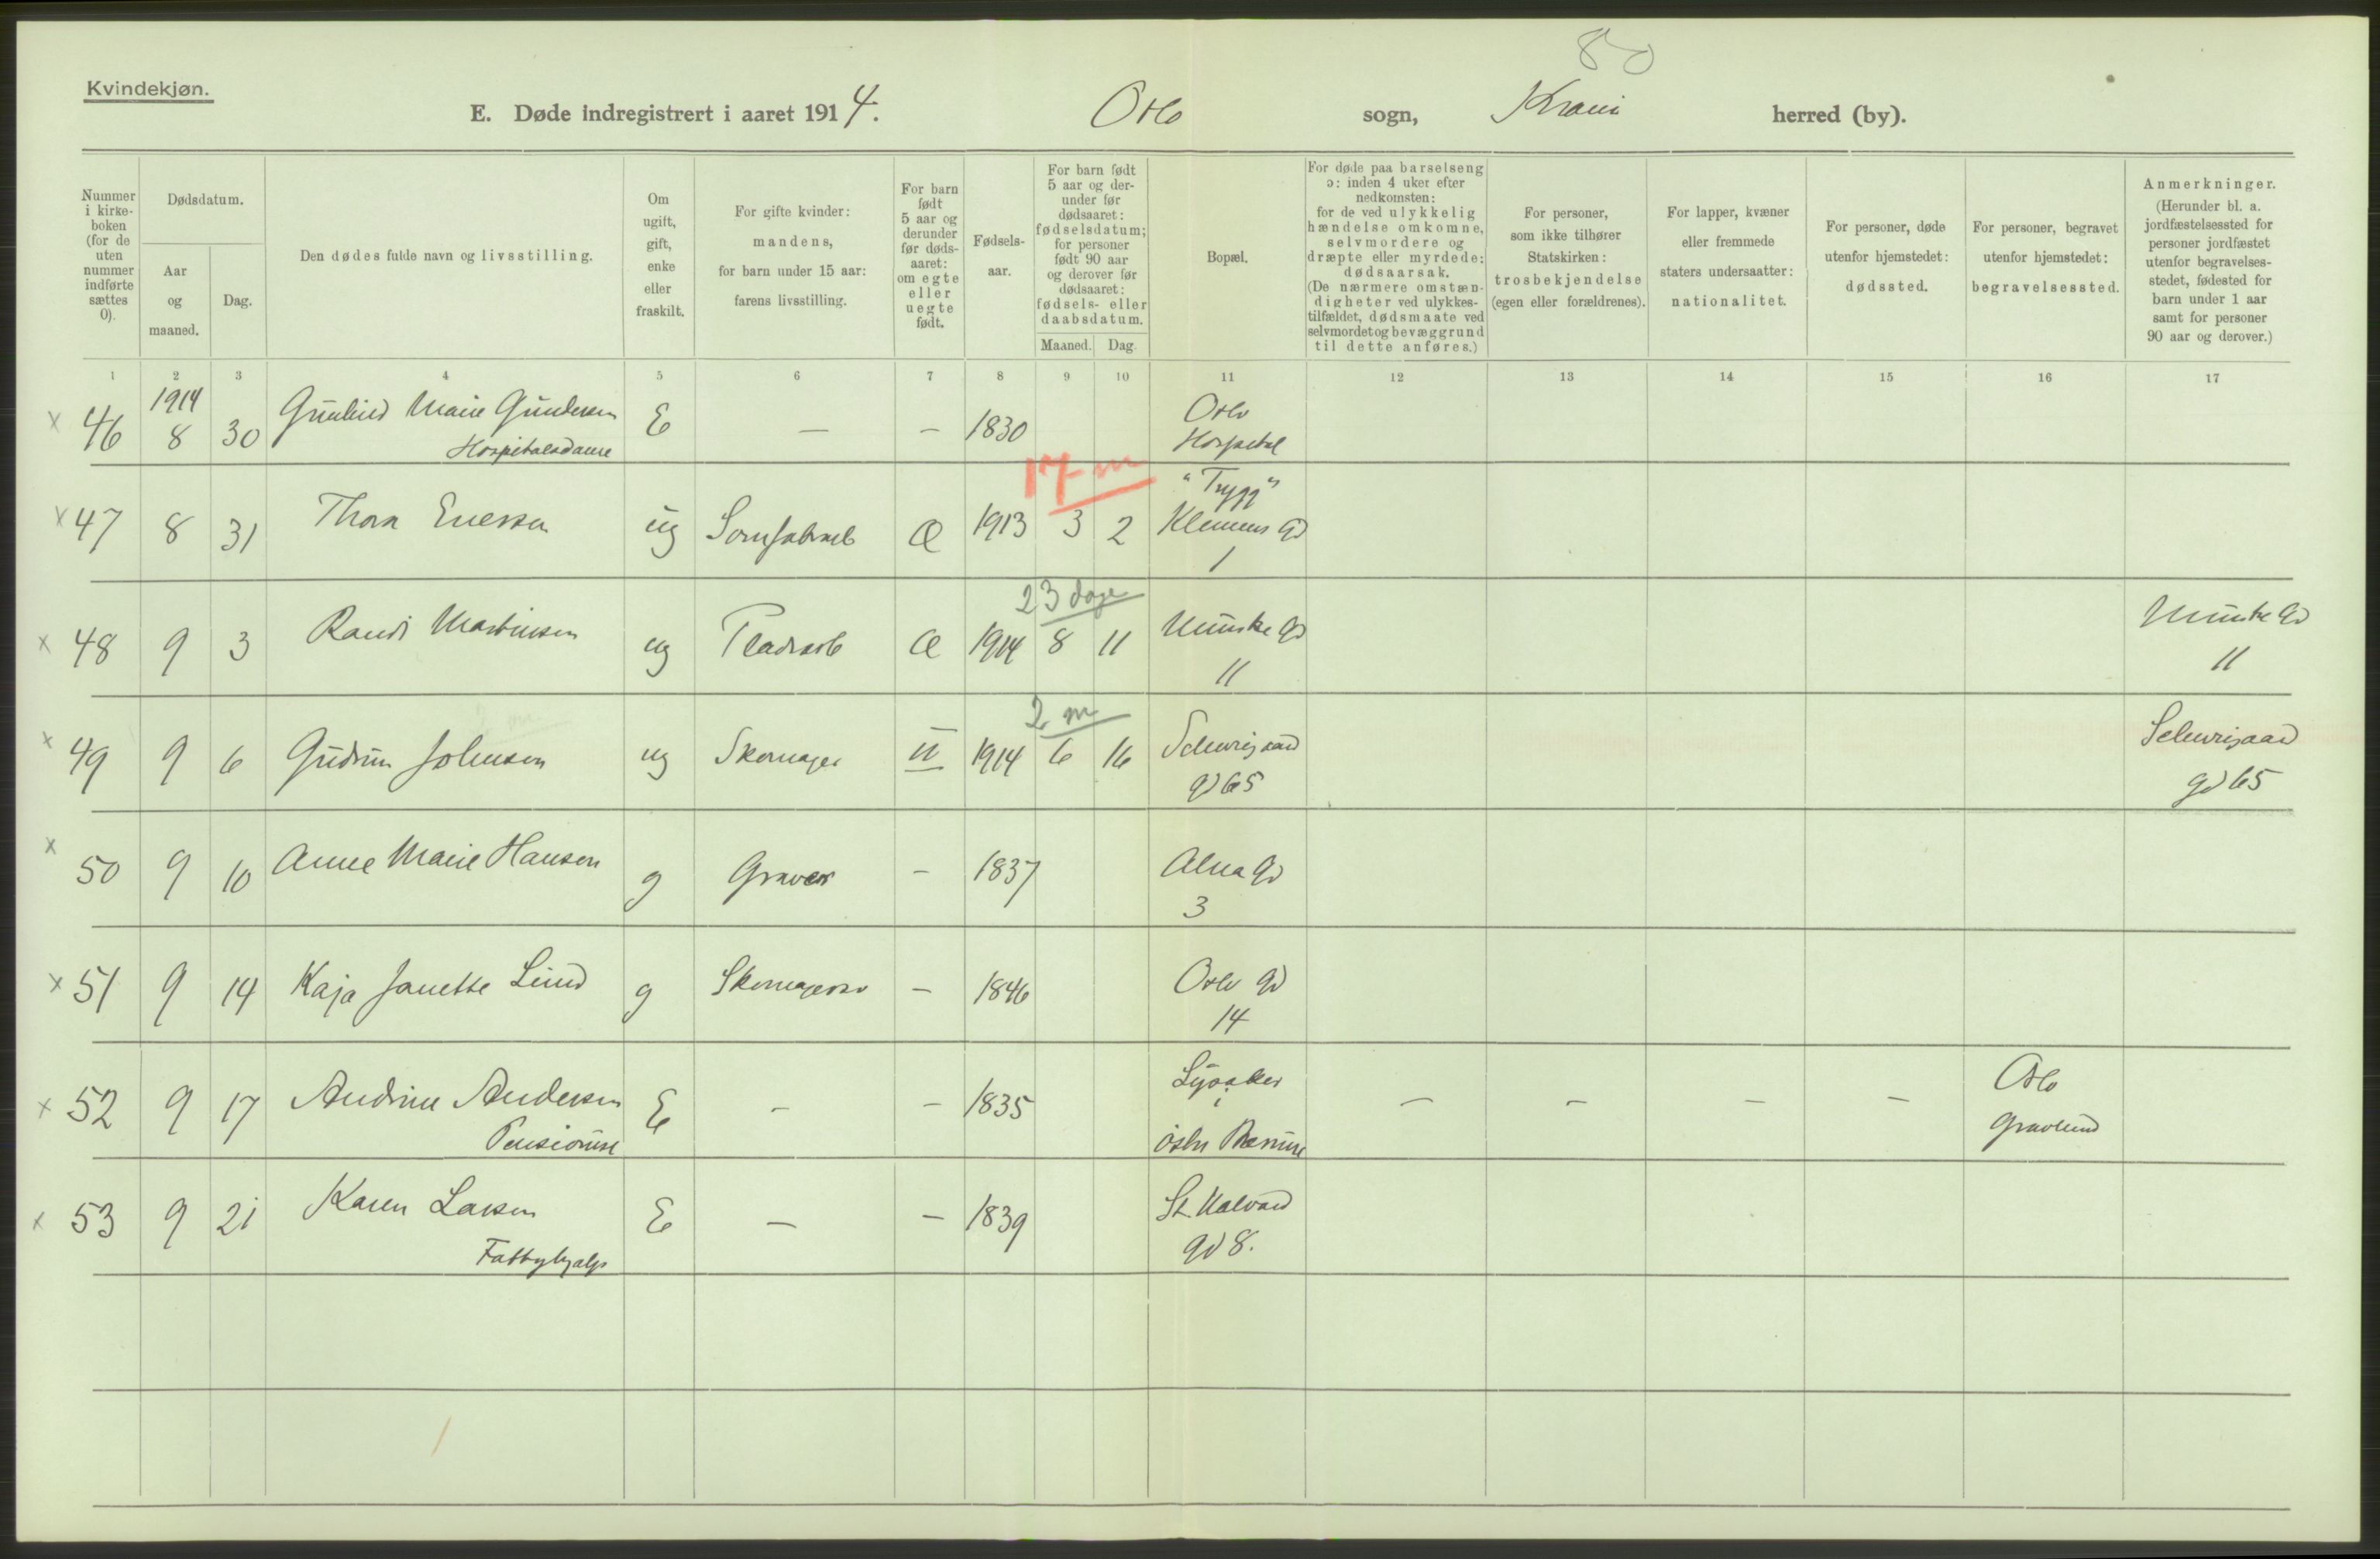 80
Kvindekjøn.
E. Døde indregistrert i aaret 1914. Oslo sogn, Krania herred (by).
Nummer i kirke-boken (for de uten nummer indførte sættes 0).
Dødsdatum.
Aar og maaned.
Dag.
Den dødes fulde navn og livsstilling.
Om ugift, gift, enke eller fraskilt.
For gifte kvinder: mandens, for barn under 15 aar: farens livsstilling.
For barn født 5 aar og derunder før døds-aaret: om egte eller uegte født.
Fødsels-aar.
For barn født 5 aar og der-under før dødsaaret: fødselsdatum; for personer født 90 aar og derover før dødsaaret: fødsels- eller daabsdatum.
Maaned. Dag.
Bopæl.
For døde paa barselseng ɔ: inden 4 uker efter nedkomsten: for de ved ulykkelig hændelse omkomne, selvmordere og dræpte eller myrdede: dødsaarsak. (De nærmere omstæn-digheter ved ulykkes-tilfældet, dødsmaate ved selvmordet og bevæggrund til dette anføres.)
For personer, som ikke tilhører Statskirken: trosbekjendelse (egen eller forældrenes).
For lapper, kvæner eller fremmede staters undersaatter: nationalitet.
For personer, døde utenfor hjemstedet: dødssted.
For personer, begravet utenfor hjemstedet: begravelsessted.
Anmerkninger. (Herunder bl. a. jordfæstelsessted for personer jordfæstet utenfor begravelses-stedet, fødested for barn under 1 aar samt for personer 90 aar og derover.)
1 2 3 4 5 6 7 8 9 10 11 12 13 14 15 16 17
1914
x 46 8 30 Gunhild Marie Gundersen E — — 1830 Oslo
Hospitalsdame Hospital
17 m "Trygg"
x 47 8 31 Thora Enersen ug Æ 1913 3 2 Klemens gd
1
23 dage
x 48 9 3 Randi Martinsen ug Pladsarb Æ 1914 8 11 Munke gd Munke gd
11 11
2 m
x 49 9 6 Gudrun Johnsen ug Skomager U 1914 6 16 Schweigaard Schweigaard
gd 65 gd 65
x 50 9 10 Anne Marie Hansen g Graver - 1837 Alna gd
3
x 51 9 14 Kaja Janette Lund g - 1846 Oslo gd
14
x 52 9 17 Andrine Andersen E - - 1835 Lysaker — - - - Oslo
i
Østre Bærum gravlund
x 53 9 21 Karen Larsen E — — 1839 St. Halvard
Fattighjælp gd 8.